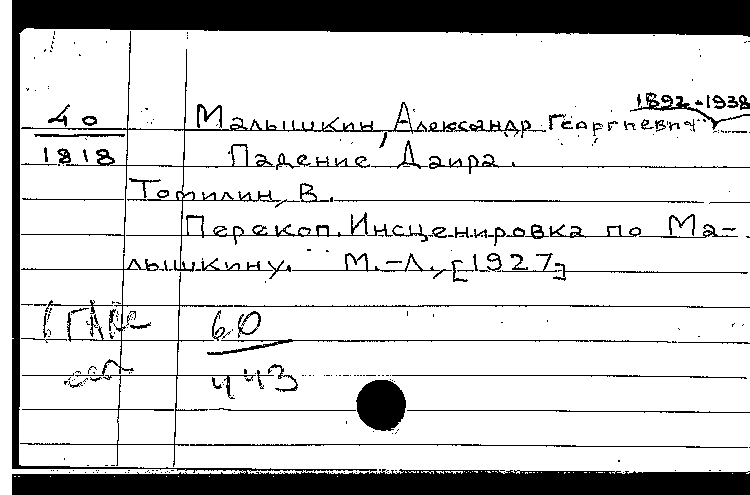 1892-1938
40 Малышкин, Александр Георгиевич
1818 Падение Даира.
Томилин, В.
Перекоп. Инсценировка по Ма-
лышкину. М.-Л., [1927]
60
443